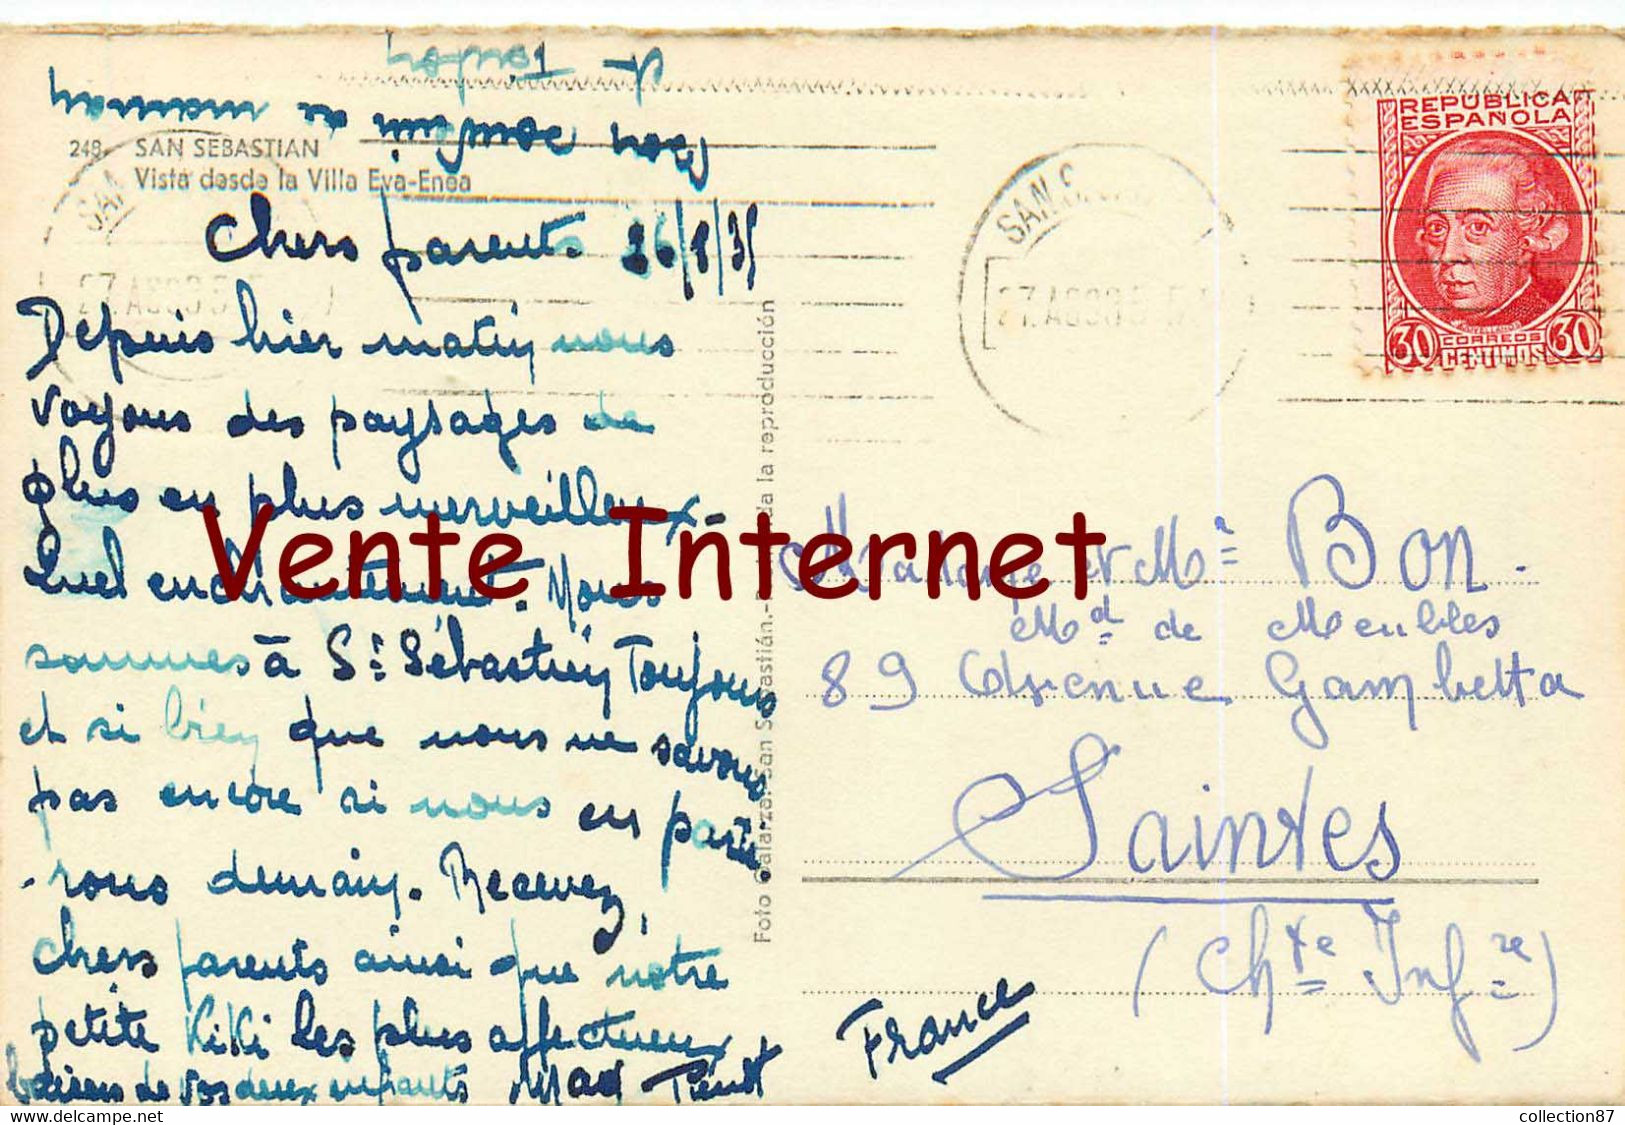 248 - SAN SEBASTIAN
Vista desde la Villa Eva-Enea
Chers parents. 26/8/35
Depuis hier matin nous
voyons des paysages de
plus en plus merveilleux -
Quel enchantement. Nous
sommes à St Sébastien Toujours
et si bien que nous ne savons
pas encore si nous en parti
-rons demain. Recevez,
chers parents ainsi que notre
petite KiKi les plus affectueux
baisers de vos deux enfants Mad
Bon souvenir de maman
Foto Galarza. San Sebastián.- da la reproducción
Vente Internet
SAN S
27.AGO35
SAN
27.AGO35
REPÚBLICA
ESPAÑOLA
JOVELLANOS
30 CORREOS 30
CENTIMOS
Madame et Mr BON.
Md de Meubles
89 Avenue Gambetta
Saintes
(Chte Infre)
France
delcampe.net
collection87